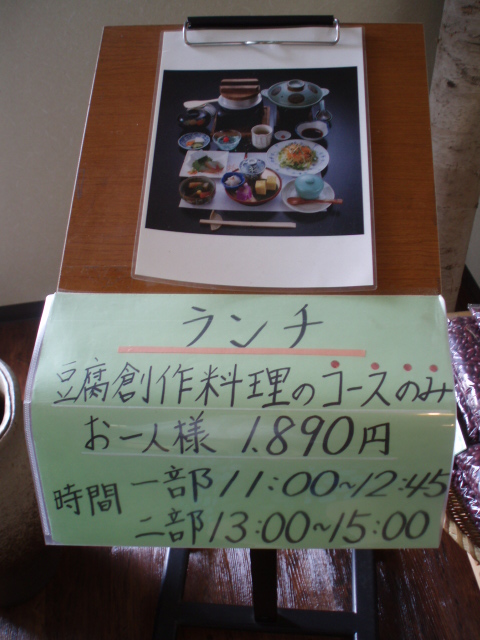 ランチ
豆腐創作料理のコースのみ
お一人様 1.890円
時間 一部 11:00~12:45
二部 13:00~15:00